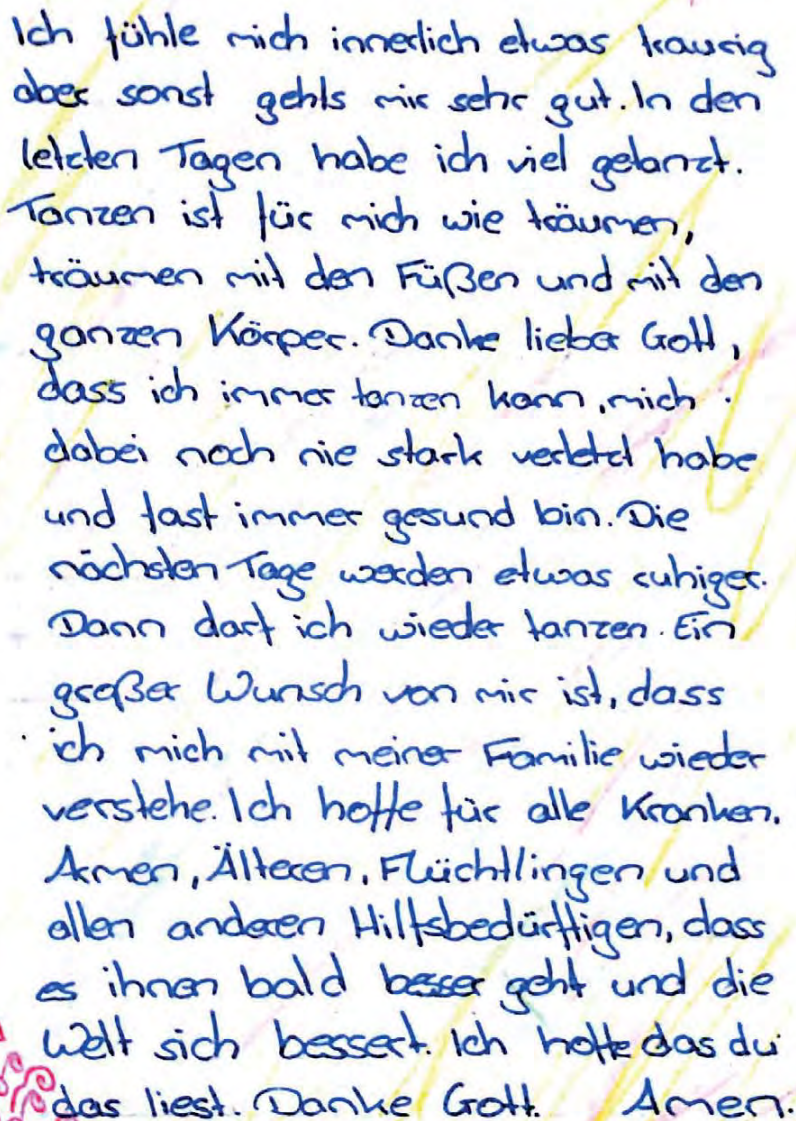 Ich fühle mich innerlich etwas traurig
aber sonst gehts mir sehr gut. In den
letzten Tagen habe ich viel getanzt.
Tanzen ist für mich wie träumen,
träumen mit den Füßen und mit den
ganzen Körper. Danke lieber Gott,
dass ich immer tanzen kann, mich
dabei noch nie stark verletzt habe
und fast immer gesund bin. Die
nächsten Tage werden etwas ruhiger.
Dann darf ich wieder tanzen. Ein
großer Wunsch von mir ist, dass
ich mich mit meiner Familie wieder
verstehe. Ich hoffe für alle Kranken,
Armen, Älteren, Flüchtlingen und
allen anderen Hilfsbedürftigen, dass
es ihnen bald besser geht und die
Welt sich bessert. Ich hoffe das du
das liest. Danke Gott. Amen.